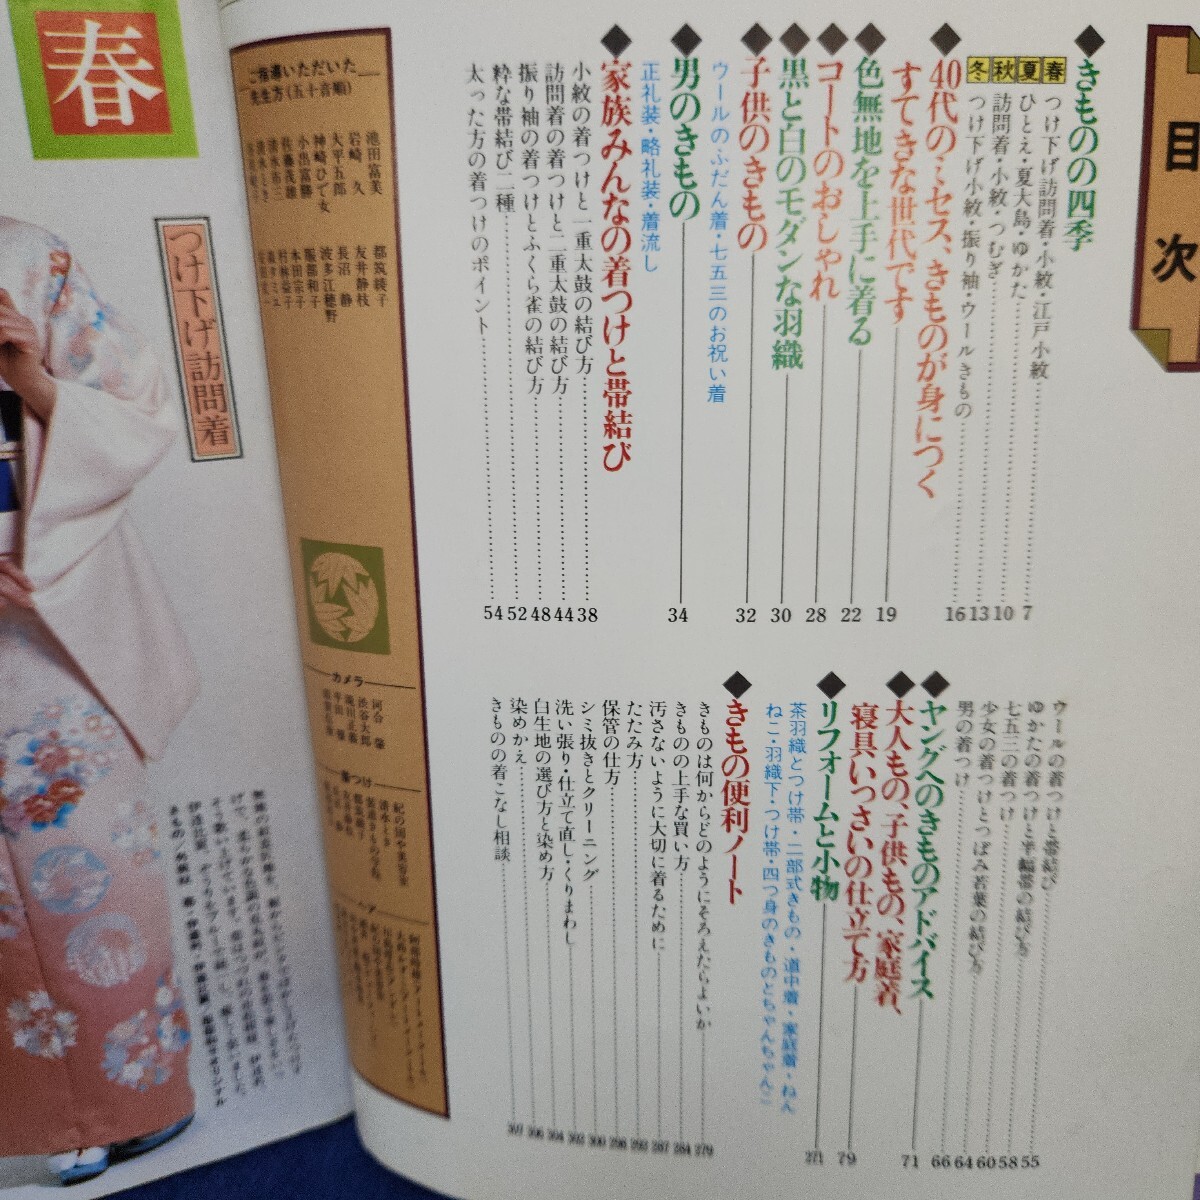 目次
きものの四季
春 つけ下げ訪問着・小紋・江戸小紋 7
夏 ひとえ・夏大島・ゆかた 10
秋 訪問着・小紋・つむぎ 13
冬 つけ下げ小紋・振り袖・ウールきもの 16
40代のミセス、きものが身につく
すてきな世代です 19
色無地を上手に着る 22
コートのおしゃれ 28
黒と白のモダンな羽織 30
子供のきもの 32
ウールのふだん着・七五三のお祝い着
男のきもの 34
正礼装・略礼装・着流し
家族みんなの着つけと帯結び
小紋の着つけと一重太鼓の結び方 38
訪問着の着つけと二重太鼓の結び方 44
振り袖の着つけとふくら雀の結び方 48
粋な帯結び二種 52
太った方の着つけのポイント 54
ウールの着つけと帯結び 55
ゆかたの着つけと半幅帯の結び方 58
七五三の着つけ 60
少女の着つけとつぼみ若葉の結び方 64
男の着つけ 66
ヤングへのきものアドバイス 71
大人もの、子供もの、家庭着、
寝具いっさいの仕立て方 79
リフォームと小物 271
茶羽織とつけ帯・二部式きもの・道中着・家庭着・ねん
ねこ・羽織下・つけ帯・四つ身のきものとちゃんちゃんこ
きもの便利ノート
きものは何からどのようにそろえたらよいか 279
きものの上手な買い方 284
汚さないように大切に着るために 287
たたみ方 293
保管の仕方 298
シミ抜きとクリーニング 300
洗い張り・仕立て直し・くりまわし 302
白生地の選び方と染め方 304
染めかえ 306
きものの着こなし相談 307
ご指導いただいた
先生方(五十音順)
池田富美
岩崎 久
大平五郎
神崎ひで女
小出富勝
佐藤茂雄
都筑綾子
友井静枝
長沼 静
波多江穂野
服部和子
本田宗子
村林益子
カメラ
河合 肇
渋谷大郎
着つけ
ヘア
春
つけ下げ訪問着